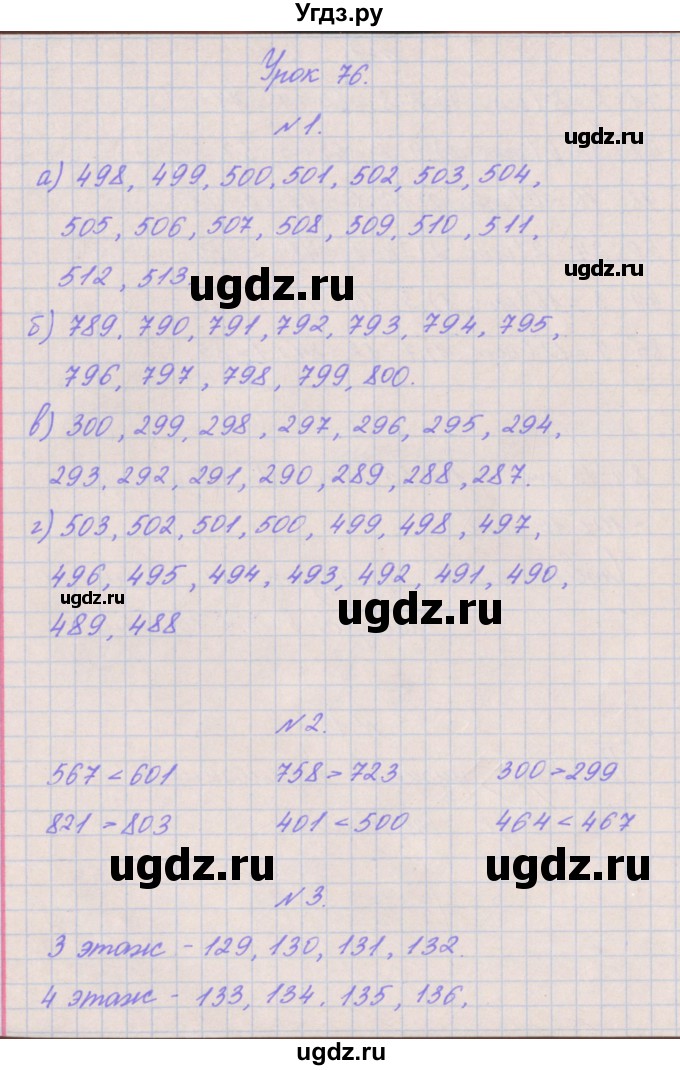 Угдз.ру
Урок 76.
№1.
ugdz.ru
а) 498, 499, 500, 501, 502, 503, 504,
505, 506, 507, 508, 509, 510, 511,
512, 513.
ugdz.ru
ugdz.ru
б) 789, 790, 791, 792, 793, 794, 795,
796, 797, 798, 799, 800.
в) 300, 299, 298, 297, 296, 295, 294,
293, 292, 291, 290, 289, 288, 287.
г) 503, 502, 501, 500, 499, 498, 497,
496, 495, 494, 493, 492, 491, 490,
ugdz.ru
ugdz.ru
489, 488
№2.
567 < 601 758 > 723 300 > 299
821 > 803 401 < 500 464 < 467
ugdz.ru
ugdz.ru
ugdz.ru
№3.
3 этаж - 129, 130, 131, 132.
4 этаж - 133, 134, 135, 136,
ugdz.ru